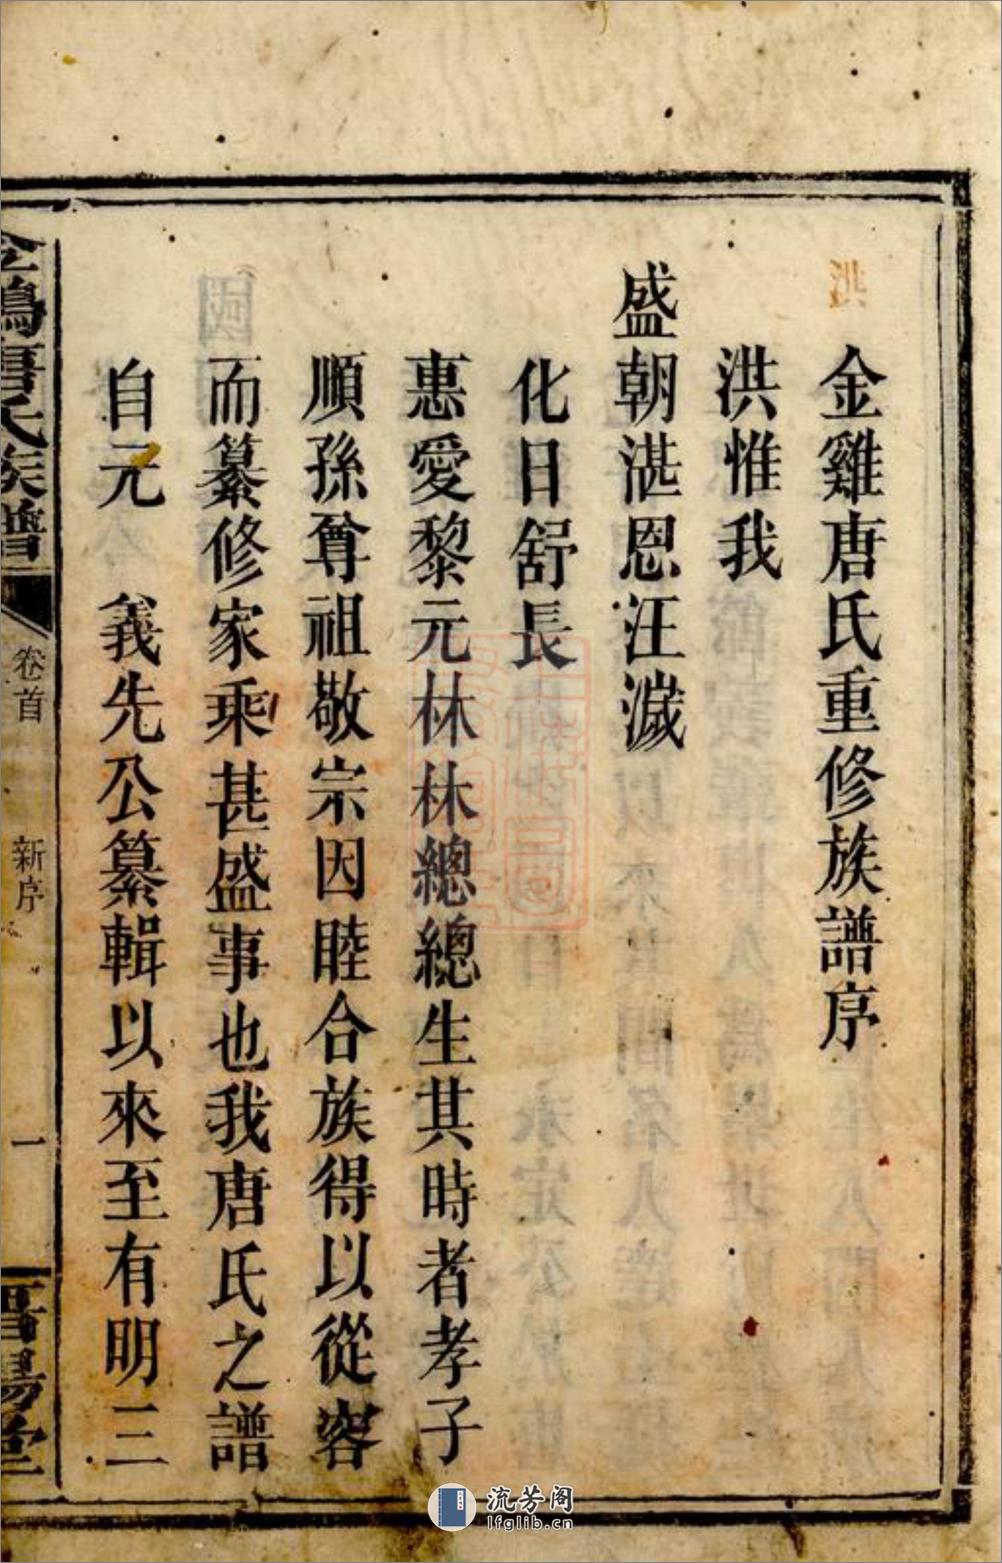 金雞唐氏重修族譜序
洪惟我
盛朝湛恩汪濊
化日舒長
惠愛黎元林林總總生其時者孝子
順孫尊祖敬宗因睦合族得以從容
而纂修家乘甚盛事也我唐氏之譜
自元　義先公纂輯以來至有明三
金鷄唐氏族譜
卷首
新序
一
晉陽堂
流芳阁
lfglib.cn